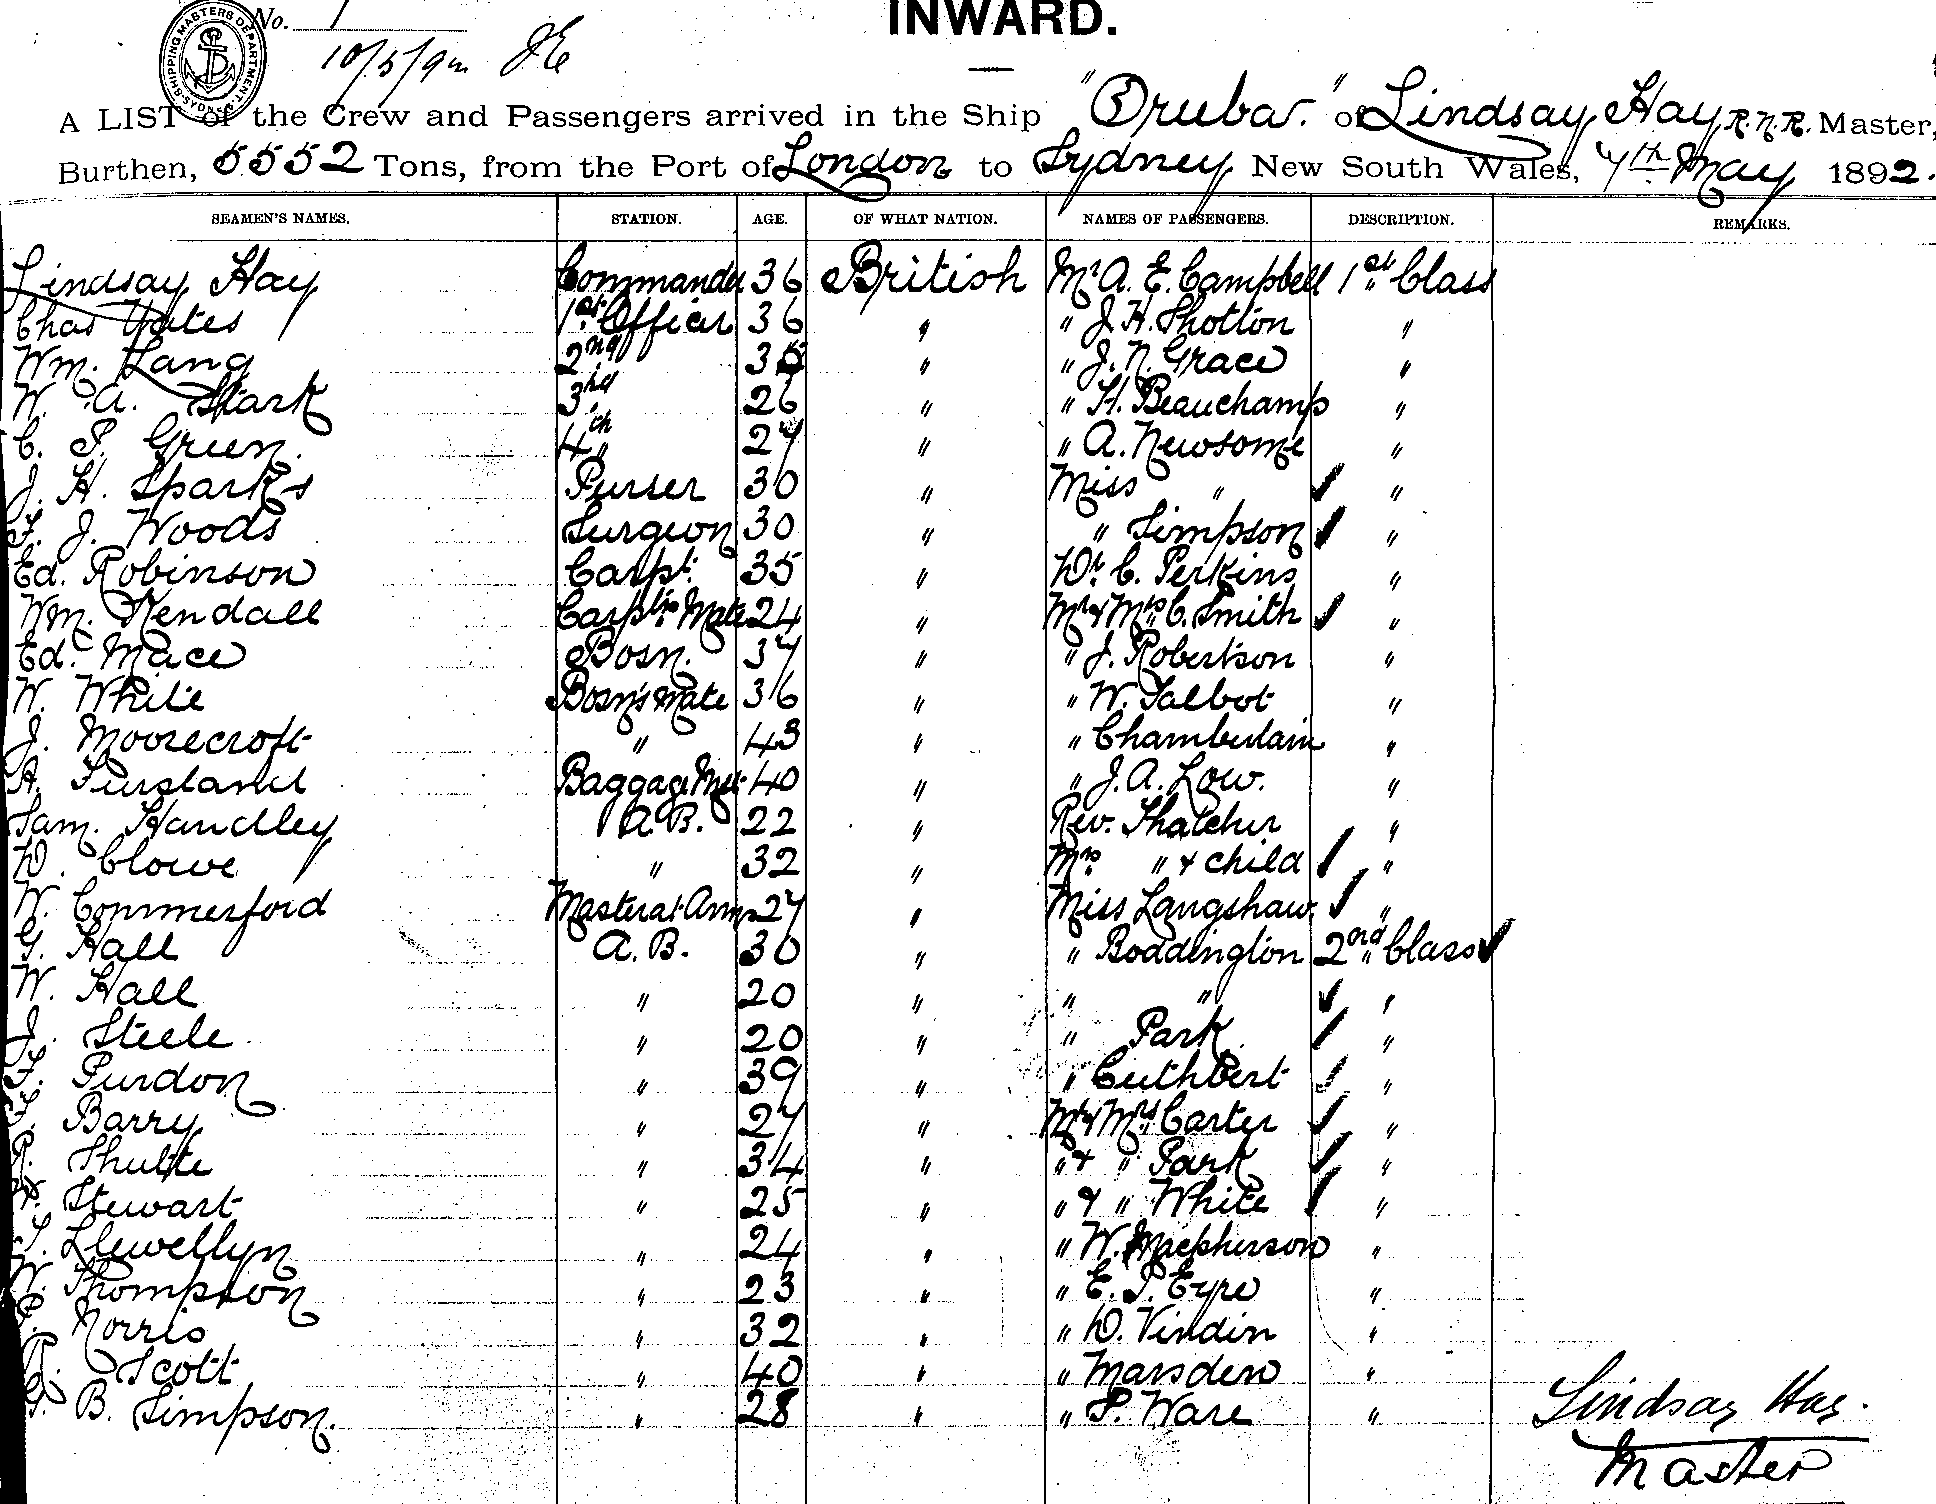 INWARD.
SHIPPING MASTERS DEPARTMENT SYDNEY
No. 1
10/5/92 JE
A LIST of the Crew and Passengers arrived in the Ship "Oruba." of Lindsay Hay R.N.R. Master,
Burthen, 5552 Tons, from the Port of London to Sydney New South Wales, 7th May 1892.
SEAMEN'S NAMES. STATION. AGE. OF WHAT NATION. NAMES OF PASSENGERS. DESCRIPTION. REMARKS.
Lindsay Hay Commander 36 British Mr A. E. Campbell 1st Class
Chas Yates 1st Officer 36 " " J. H. Shotton "
Wm. Lang 2nd " 35 " " J. N. Grace "
W. A. Stark 3rd " 26 " " H. Beauchamp "
C. P. Green. 4th " 27 " " A. Newsome "
J. H. Sparks Purser 30 " Miss " "
F. J. Woods Surgeon 30 " " Simpson "
Ed. Robinson Carpt. 35 " Dr. C. Perkins "
Wm. Kendall Carptrs Mate 24 " Mr & Mrs C. Smith "
Ed. Mace Bosn. 37 " " J. Robertson "
W. White Bosn's Mate 36 " " W. Talbot "
J. Moorecroft " 43 " " Chamberlain "
A. Pursland Baggage Mstr 40 " " J. A. Low. "
Sam. Handley A.B. 22 " Rev. Thatcher "
D. Clowe " 32 " Mrs " & child "
W. Commerford Master at Arms 27 " Miss Langshaw "
G. Hall A. B. 30 " " Boddington 2nd Class
W. Hall " 20 " " " "
J. Steele " 20 " " Park "
F. Purdon " 39 " " Cuthbert "
Barry " 27 " Mr & Mrs Carter "
Shutte " 34 " " & " Park "
Stewart " 25 " " & " White "
Llewellyn " 24 " " W. Macpherson "
W. Thompson " 23 " " E. P. Eyre "
Norris " 32 " " D. Vindin "
Scott " 40 " " Marsden "
G. B. Simpson. " 28 " " P. Ware "
Lindsay Hay.
Master